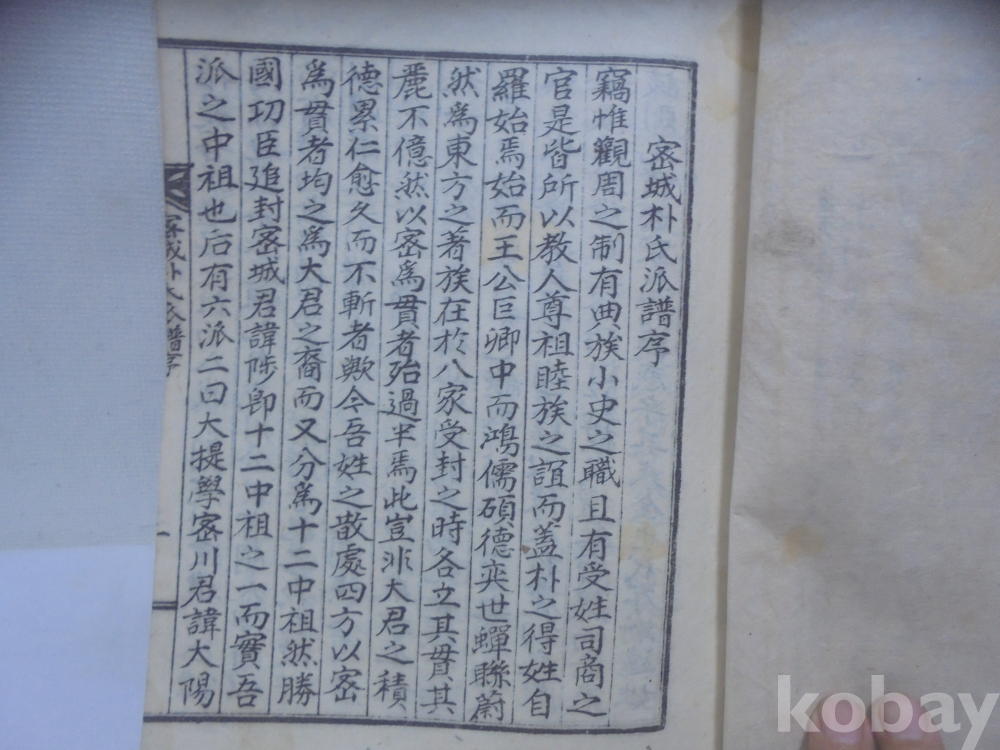 密城朴氏派譜序
竊惟觀周之制有典族小史之職且有受姓司商之
官是皆所以教人尊祖睦族之誼而盖朴之得姓自
羅始焉始而王公巨卿中而鴻儒碩德奕世蟬聯蔚
然爲東方之著族在於八家受封之時各立其貫其
麗不億然以密爲貫者殆過半焉此豈非大君之積
德累仁愈久而不斬者歟今吾姓之散處四方以密
爲貫者均之爲大君之裔而又分爲十二中祖然勝
國功臣追封密城君諱陟卽十二中祖之一而實吾
派之中祖也后有六派二曰大提學密川君諱大陽
密城朴氏派譜序
一
kobay